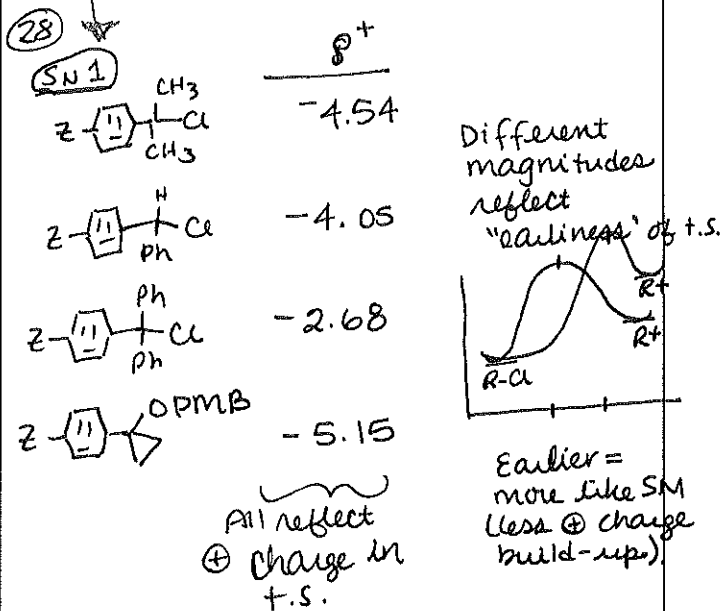 28
SN1
ρ+
CH3
Z
Cl
CH3
-4.54
H
Z
Cl
Ph
-4.05
Ph
Z
Cl
Ph
-2.68
OPMB
Z
-5.15
All reflect
⊕ charge in
t.s.
Different
magnitudes
reflect
"earliness" of t.s.
R+
R+
R-Cl
Earlier =
more like SM
(less ⊕ charge
build-up.)